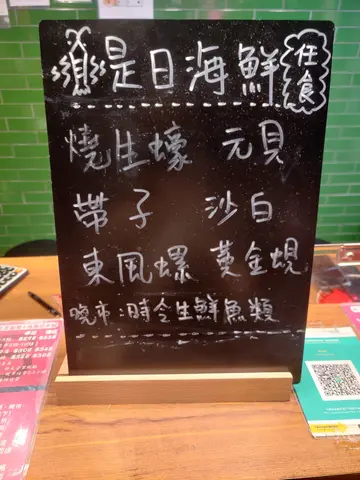 是日海鮮 任食
燒生蠔 元貝
帶子 沙白
東風螺 黃金蜆
晚市:時令生鮮魚類